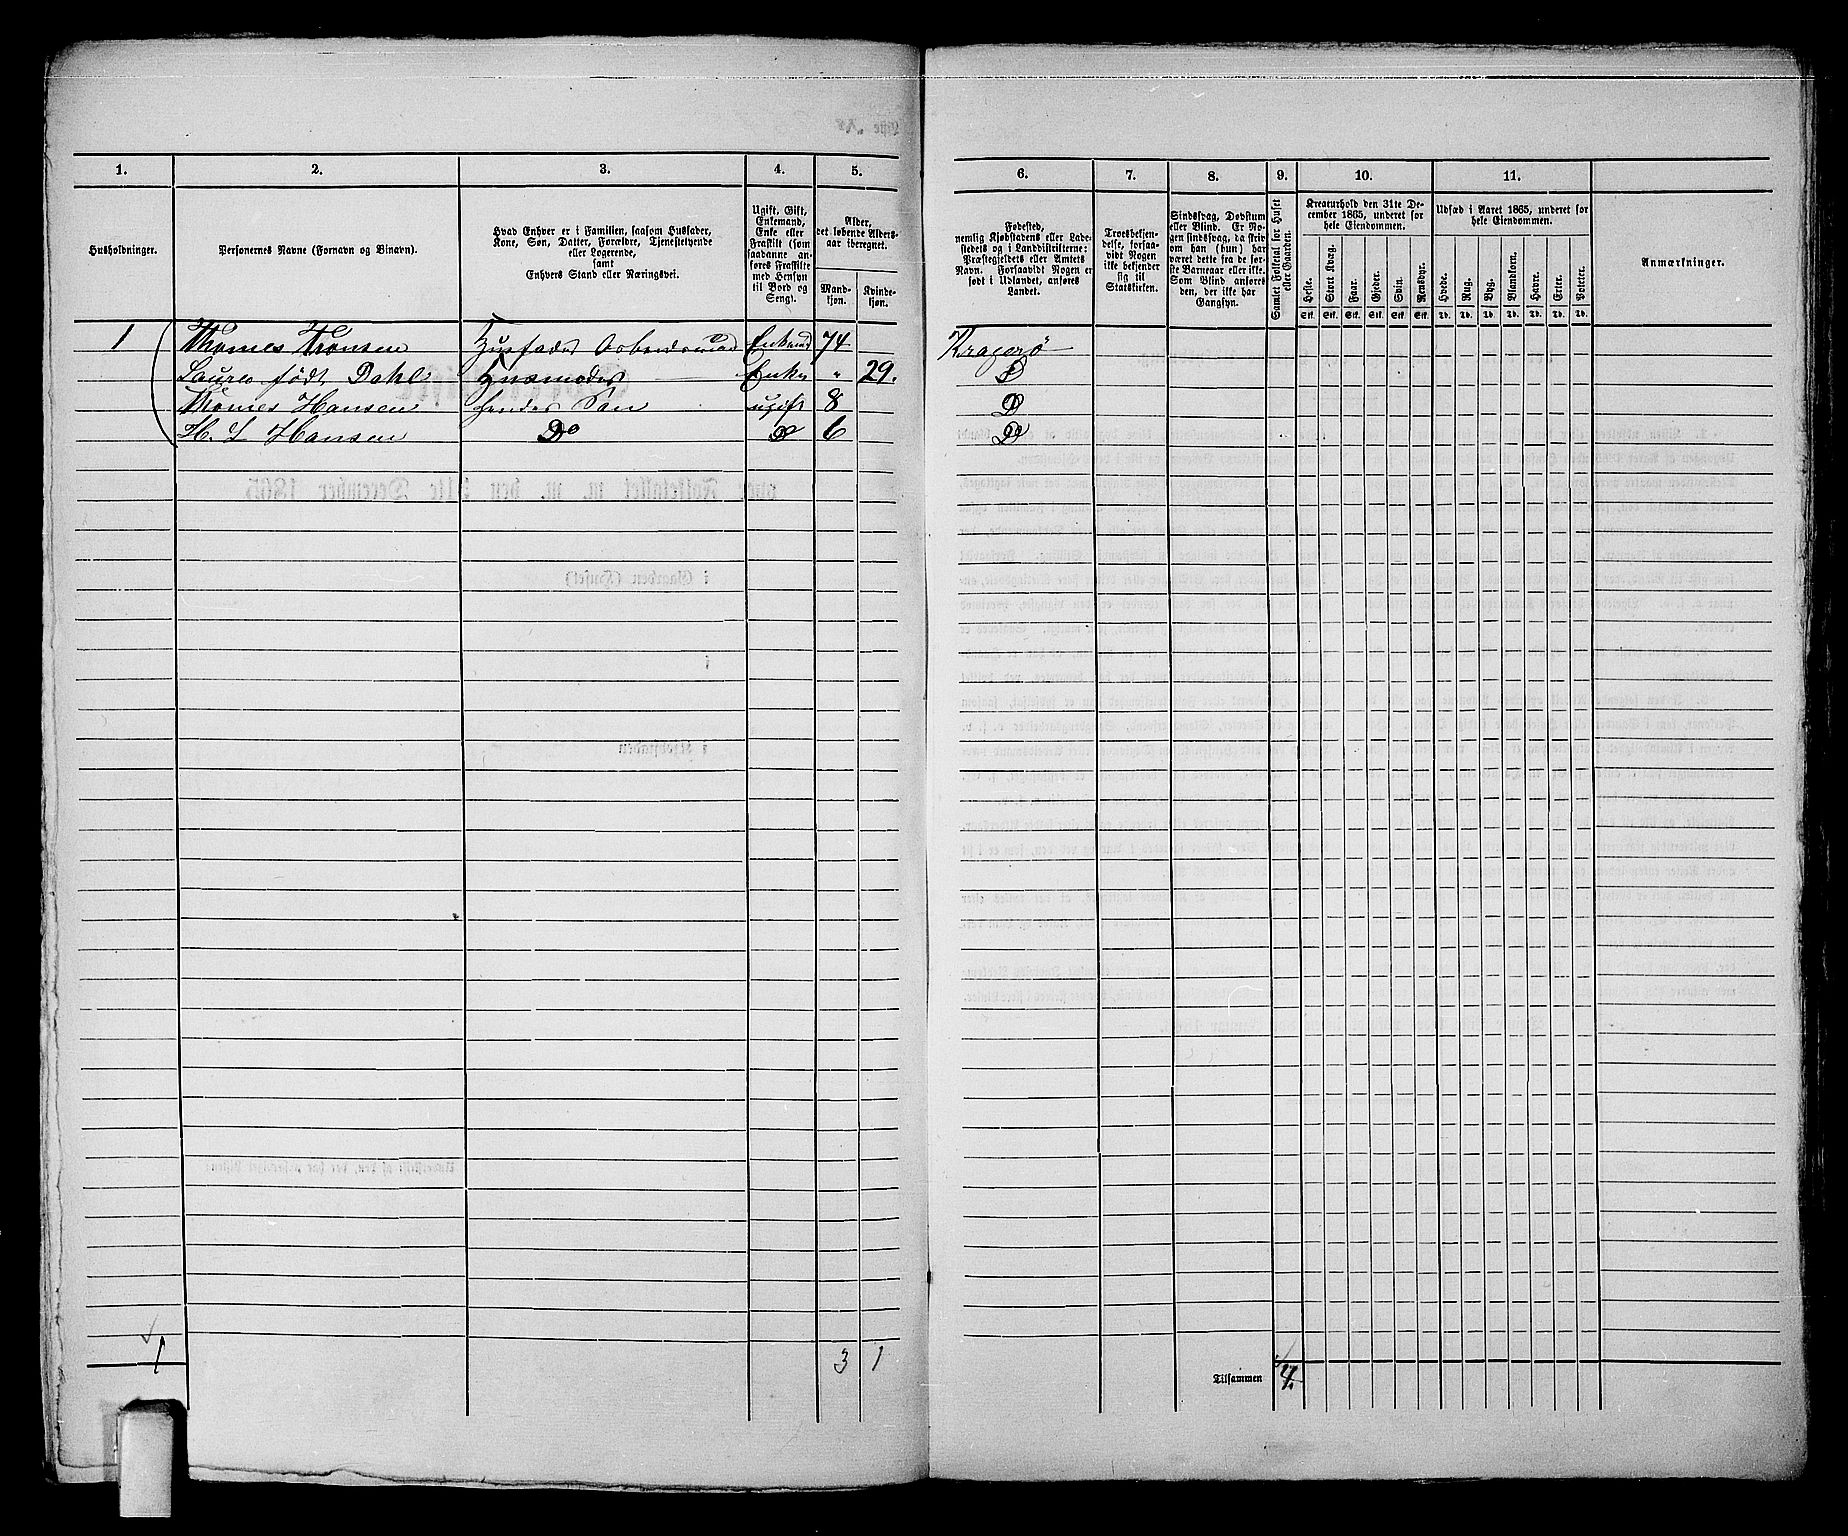 1. 2. 3. 4. 5.
Husholdninger.
Personernes Navne (Fornavn og Binavn).
Hvad Enhver er i Familien, saasom Husfader,
Kone, Søn, Datter, Forældre, Tjenestetyende
eller Logerende,
samt
Enhvers Stand eller Næringsvei.
Ugift, Gift,
Enkemand,
Enke eller
Fraskilt (som
saadanne an-
føres Fraskilte
med Hensyn
til Bord og
Seng).
Alder,
det løbende Alders-
aar iberegnet.
Mand-
kjøn.
Kvinde-
kjøn.
1 Thomes Hansen Husfader Arbeidsmand Enkmd 74
Laura født Dahl Huusmoder Enke " 29.
Thomes Hansen Hendes Søn ugift 8
H. L Hansen Do Do 6
1 3 1
6. 7. 8. 9. 10. 11.
Fødested,
nemlig Kjøbstadens eller Lade-
stedets og i Landdistrikterne:
Præstegjeldets eller Amtets
Navn. Forsaavidt Nogen er
født i Udlandet, anføres
Landet.
Troesbekjen-
delse, forsaa-
vidt Nogen
ikke bekjender
sig til
Statskirken.
Sindssvag, Døvstum
eller Blind. Er No-
gen sindssvag, da skriv
om han (hun) har
været dette fra de før-
ste Barneaar eller ikke.
Som Blind anføres
den, der ikke har
Gangsyn.
Samlet Folketal for Huset
eller Gaarden.
Kreaturhold den 31te De-
cember 1865, underet for
hele Eiendommen.
Heste. Stort Kvæg. Faar. Gjeder. Svin. Rensdyr.
Stk. Stk. Stk. Stk. Stk. Stk.
Udsæd i Aaret 1865, underet for
hele Eiendommen.
Hvede. Rug. Byg. Blandkorn. Havre. Erter. Poteter.
Td. Td. Td. Td. Td. Td. Td.
Anmærkninger.
Kragerø
D
D
Do
Tilsammen 4.